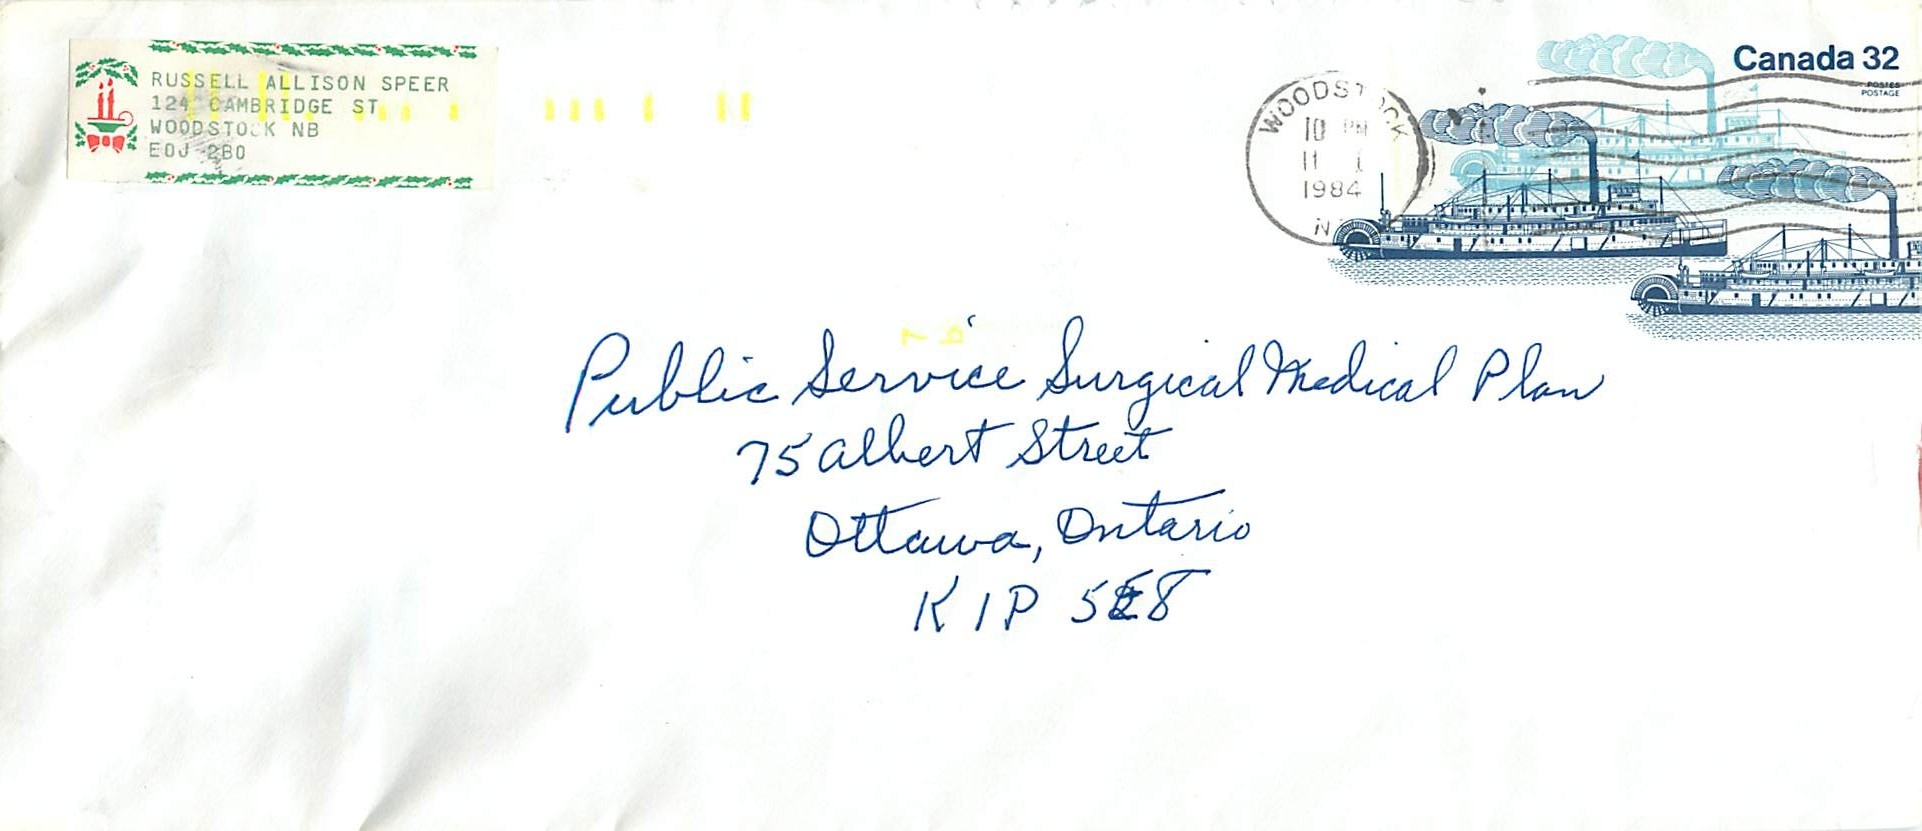 RUSSELL ALLISON SPEER
124 CAMBRIDGE ST
WOODSTOCK NB
E0J 2B0
Canada 32
POSTES
POSTAGE
WOODSTOCK
10 PM
11 I
1984
N
Public Service Surgical Medical Plan
75 Albert Street
Ottawa, Ontario
K1P 5E8